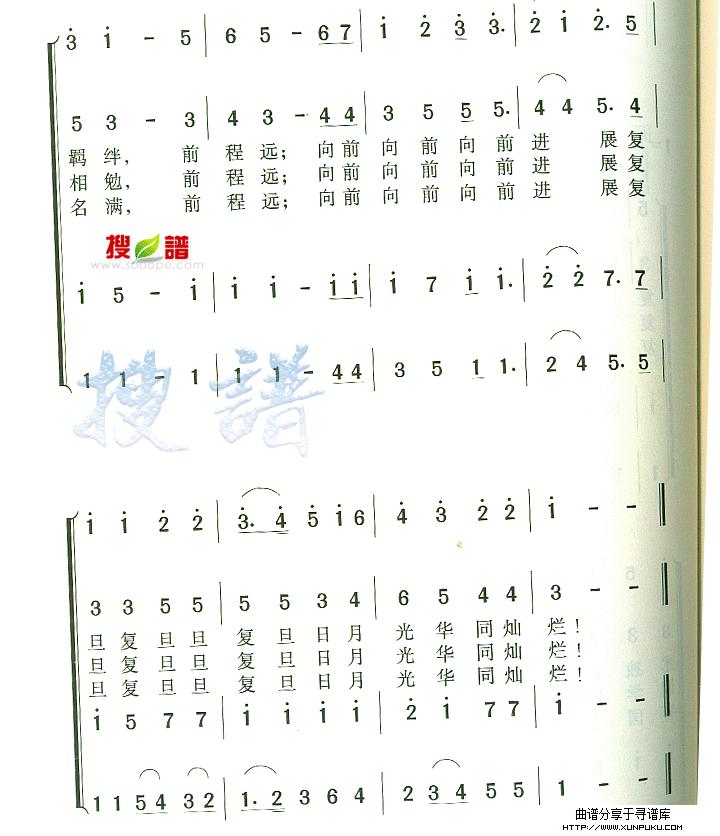 3 i - 5 | 6 5 - 6 7 | i 2 3 3. | 2 i 2. 5 |
5 3 - 3 | 4 3 - 4 4 | 3 5 5 5. | 4 4 5. 4
羁绊， 前程远；向前向前向前进 展复
相勉， 前程远；向前向前向前进 展复
名满， 前程远；向前向前向前进 展复
搜谱
www.sooopu.com
i 5 - i | i i - i i | i 7 i i. | 2 2 7. 7
1 1 - 1 | 1 1 - 4 4 | 3 5 1 1. | 2 4 5. 5
搜谱
i i 2 2 | 3. 4 5 i 6 | 4 3 2 2 | i - -
3 3 5 5 | 5 5 3 4 | 6 5 4 4 | 3 - -
旦复旦旦 复旦日月 光华同灿烂！
旦复旦旦 复旦日月 光华同灿烂！
旦复旦旦 复旦日月 光华同灿烂！
i 5 7 7 | i i i i | 2 i 7 7 | i - -
1 1 5 4 3 2 | 1. 2 3 6 4 | 2 3 4 5 5 | 1 - -
曲谱分享于寻谱库
HTTP://WWW.XUNPUKU.COM